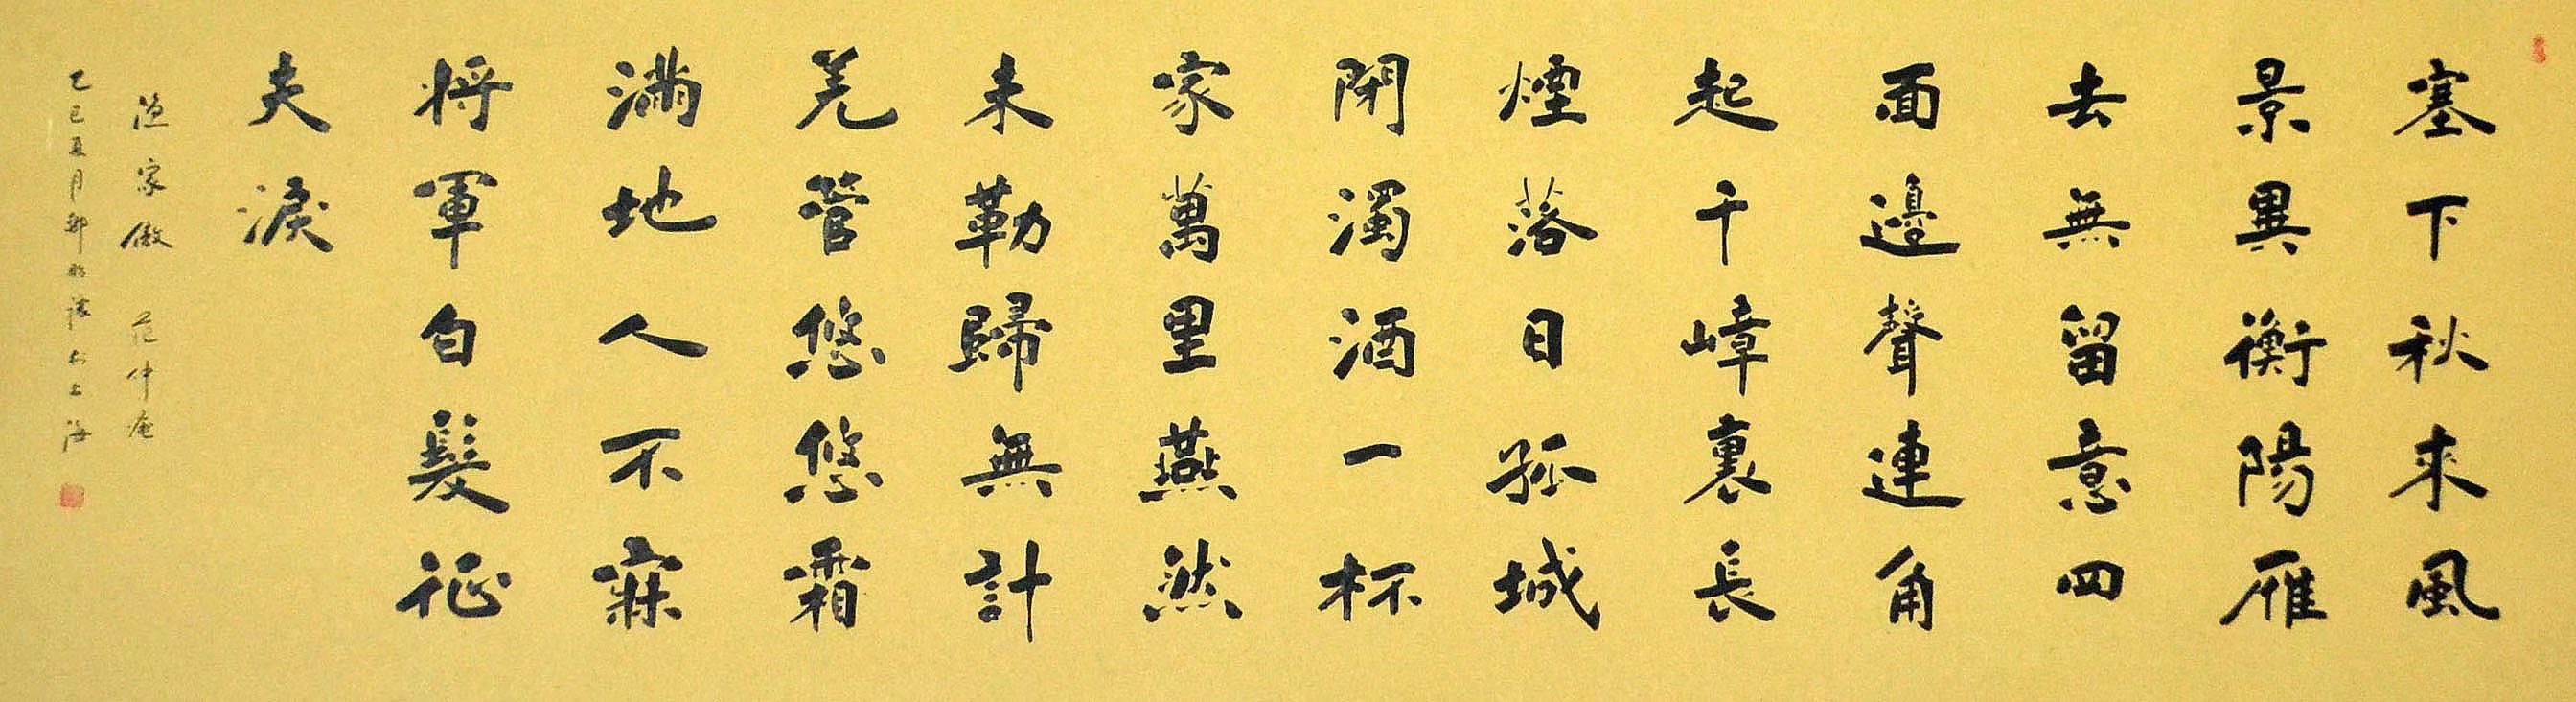 塞下秋来風
景異衡陽雁
去無留意四
面邊聲連角
起千嶂裏長
煙落日孤城
閉濁酒一杯
家萬里燕然
未勒歸無計
羌管悠悠霜
滿地人不寐
将軍白髮征
夫淚
漁家傲 范仲淹
乙巳夏月 於上海